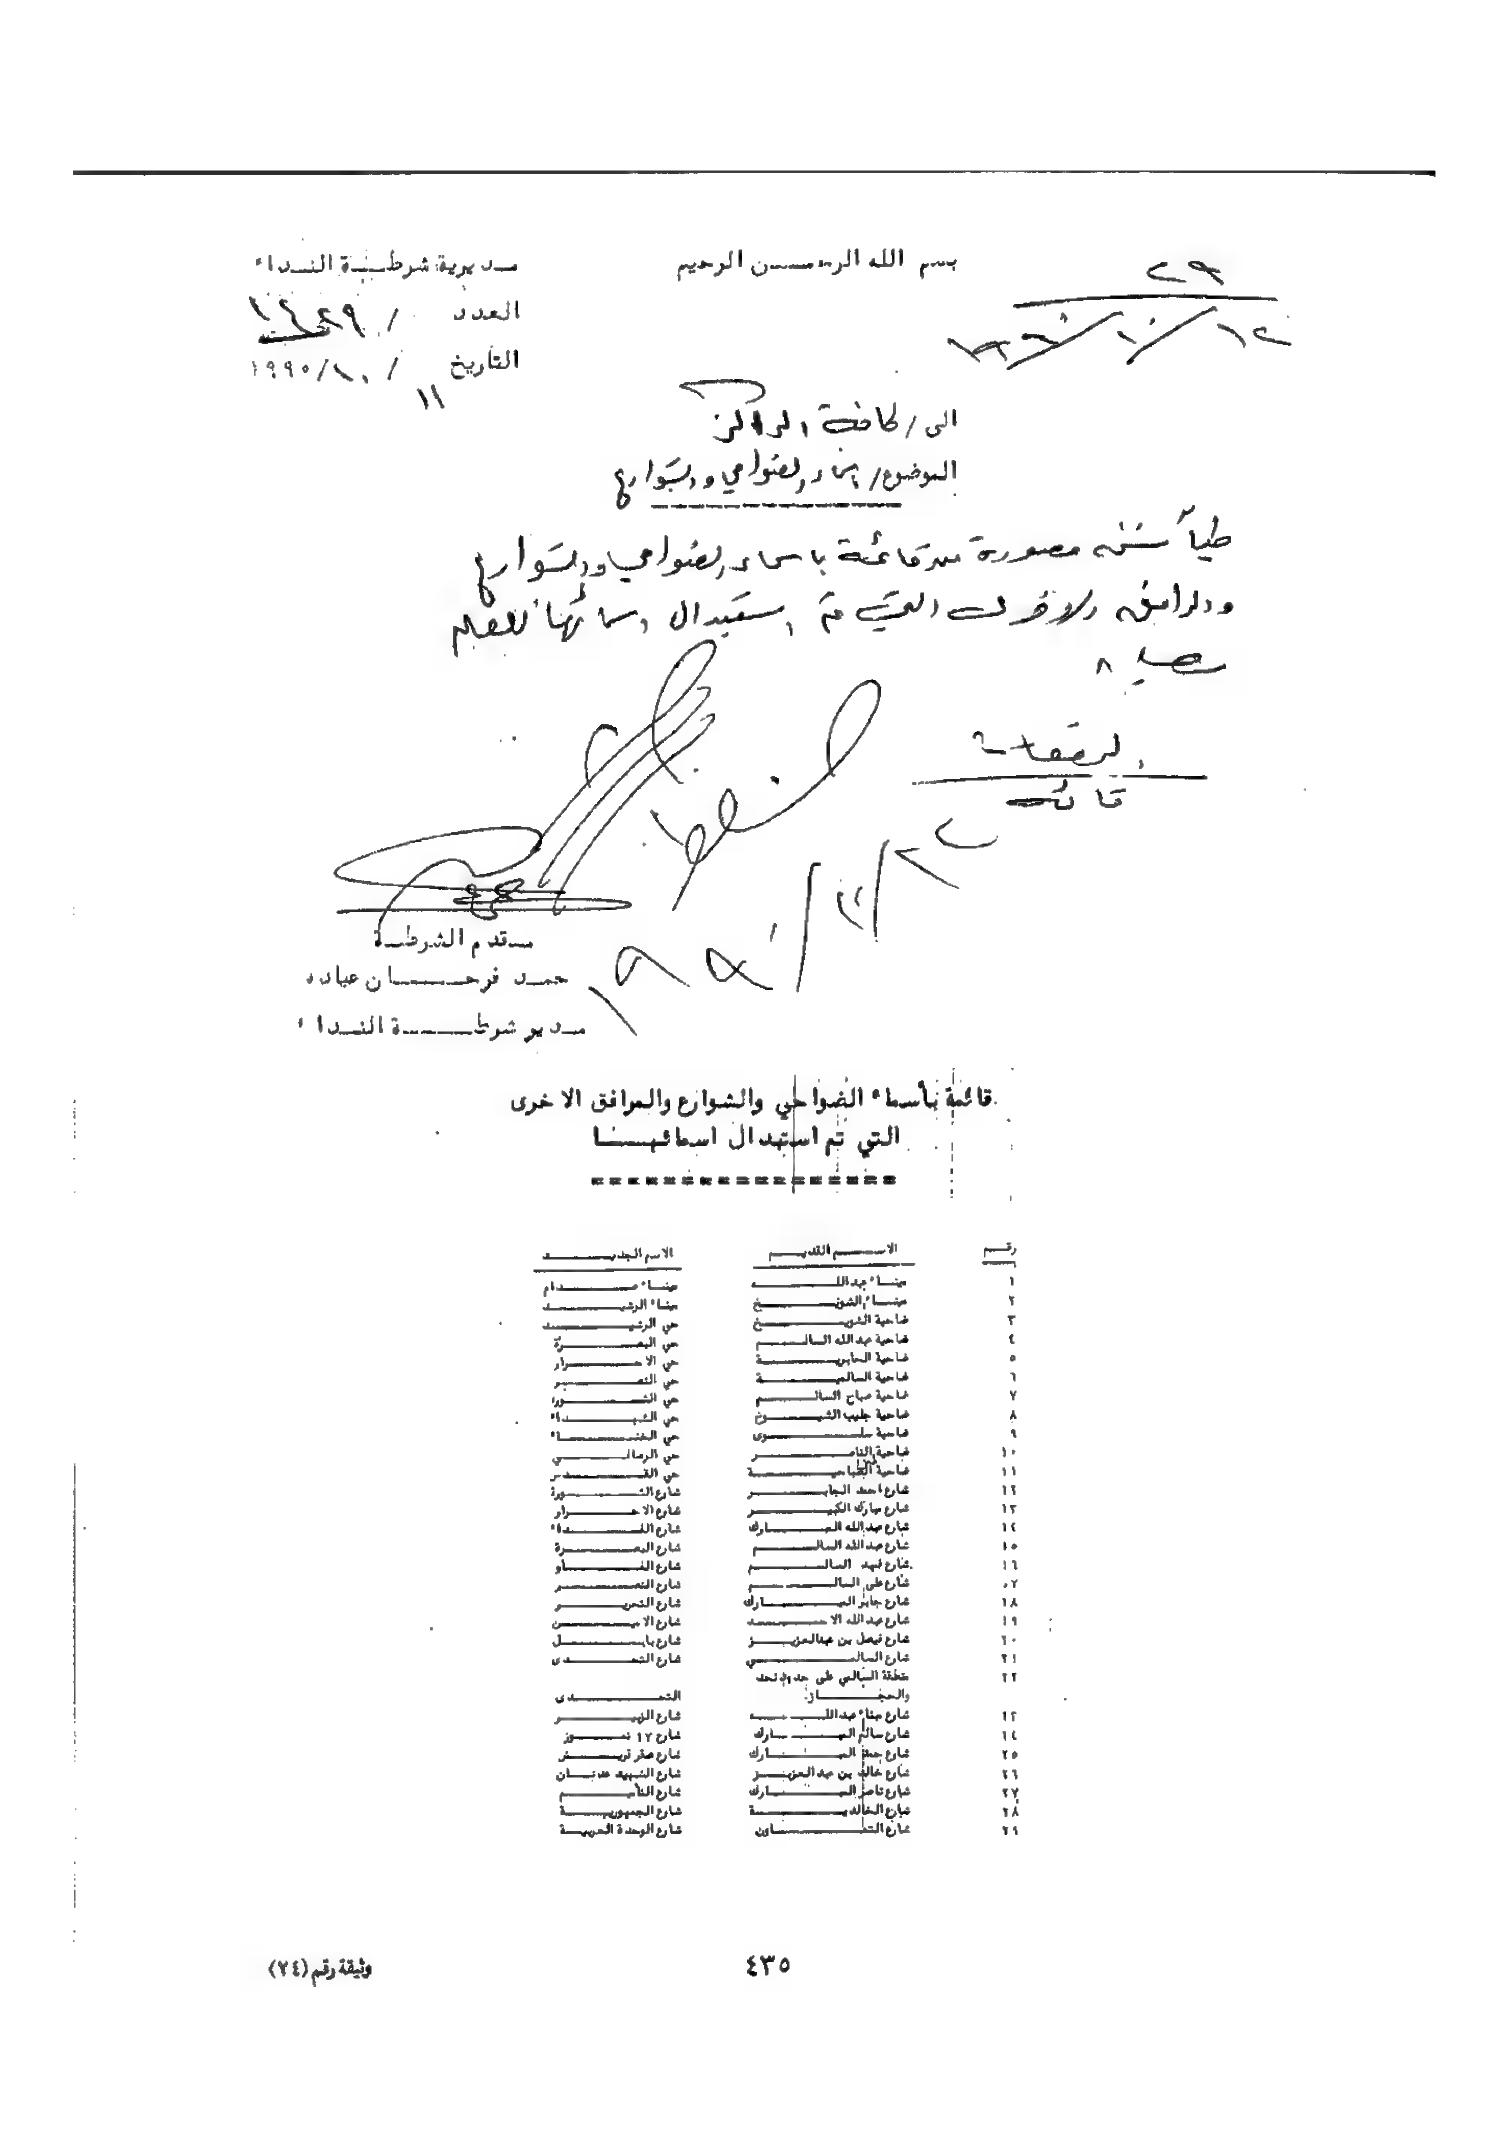 بسم الله الرحمن الرحيم
مديرية شرطة النداء
العدد / ١٤٢٩
التاريخ / ١٠/ ١٩٩٠
١١
٢٩
١٢/١٠/
الى / كافة المراكز
الموضوع / اسماء الضواحي والشوارع
طياً نسخة مصورة من قائمة باسماء الضواحي والشوارع
والمرافق الاخرى التي تم استبدال اسمائها للعلم
المرفقات
قائمة
مقدم الشرطة
حمد فرحان عباده
مدير شرطة النداء
قائمة بأسماء الضواحي والشوارع والمرافق الاخرى
التي تم استبدال اسمائهـا
رقم الاسم القديم الاسم الجديد
١ ميناء عبدالله ميناء صدام
٢ ميناء الشويخ ميناء الرشيد
٣ ضاحية الشويخ حي الرشيد
٤ ضاحية عبدالله السالم حي البصرة
٥ ضاحية الجابرية حي الاحرار
٦ ضاحية السالمية حي النصر
٧ ضاحية صباح السالم حي الثورة
٨ ضاحية جليب الشيوخ حي الشهداء
٩ ضاحية سلوى حي الخنساء
١٠ ضاحية الناصر حي الرصافي
١١ ضاحية الصباحية حي القصر
١٢ شارع احمد الجابر شارع الثورة
١٣ شارع مبارك الكبير شارع الاحرار
١٤ شارع عبدالله المبارك شارع النداء
١٥ شارع عبدالله السالم شارع البصرة
١٦ شارع فهد السالم شارع الفاو
١٧ شارع علي السالم شارع النصر
١٨ شارع جابر المبارك شارع التحرير
١٩ شارع عبدالله الاحمد شارع الامين
٢٠ شارع فيصل بن عبدالعزيز شارع بابل
٢١ شارع السالمي شارع التحدى
٢٢ منطقة السالمي على حدود نجد
والحجاز التحدى
٢٣ شارع ميناء عبدالله شارع الزبير
٢٤ شارع سالم المبارك شارع ١٧ تموز
٢٥ شارع حمد المبارك شارع صقر قريش
٢٦ شارع خالد بن عبدالعزيز شارع الشهيد عدنان
٢٧ شارع ناصر المبارك شارع التأميم
٢٨ شارع الخالدية شارع الجمهورية
٢٩ شارع التعاون شارع الوحدة العربية
٤٣٥
وثيقة رقم (٢٤)